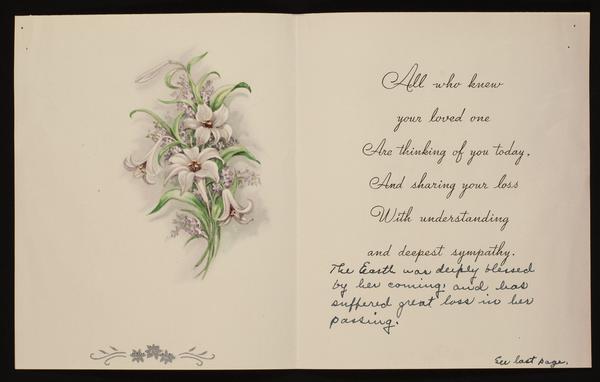 All who knew
your loved one
Are thinking of you today,
And sharing your loss
With understanding
and deepest sympathy.
The Earth was deeply blessed
by her coming, and has
suffered great loss in her
passing.
See last page.